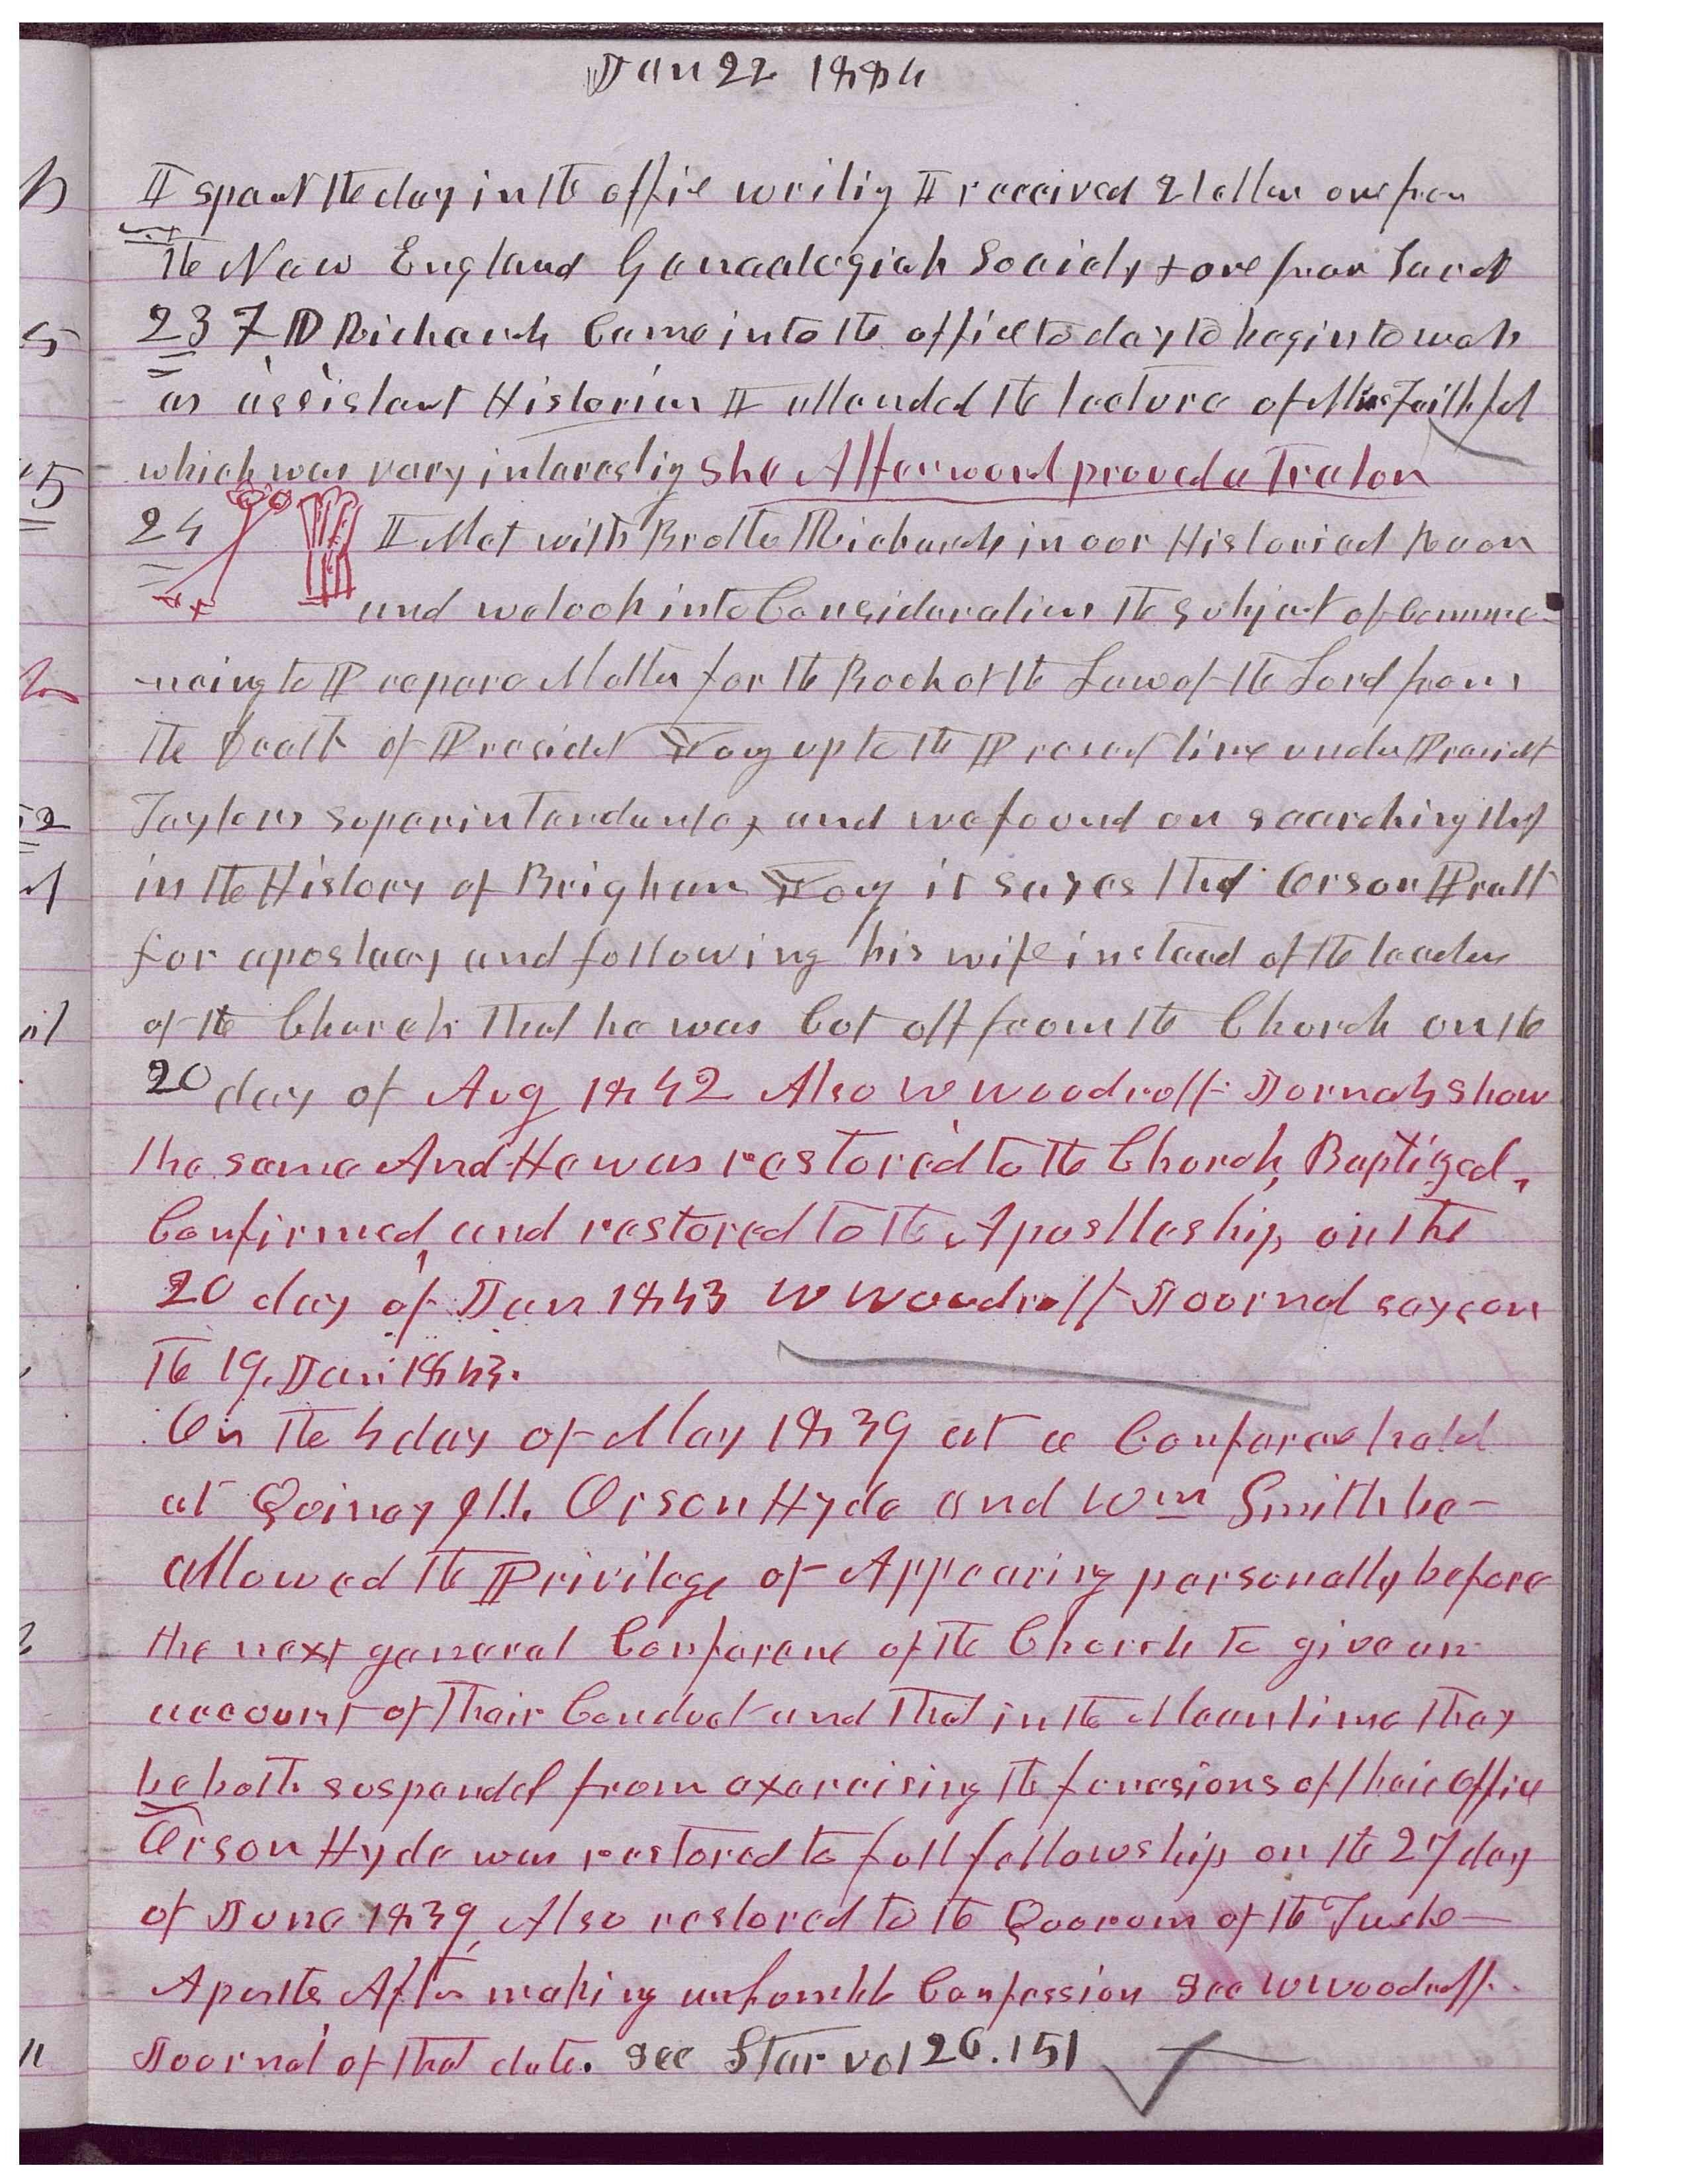 Jan 22 1884
I spent the day in the office writing I received 2 letters one from
the New England Genealogical Society & one from Sarah
23 F D Richards Came into the office to day to begin to work
as assistant Historian I attended the lecture of Miss Faithful
which was very interesting She Afterword proved a Traton
24 I Met with Brother Richards in our Historical Room
and we took into Consideration the subject of Comme-
-ncing to Prepare Matter for the Book of the Law of the Lord from
the Death of President Young up to the Present time under President
Taylors Superintendency and we found on searching that
in the History of Brigham Young it sayes that Orson Pratt
for apostacy and following his wife instead of the leaders
of the Church that he was Cut off from the Church on the
20 day of Aug 1842 Also W Woodruff Journals show
the same And He was restored to the Church, Baptized,
Confirmed, and restored to the Apostleship on the
20 day of Jan 1843 W Woodruff Journal says on
the 19, Jan. 1843.
On the 4 day of May 1839 at a Conference held
at Quincy Ill. Orson Hyde and Wm Smith be
allowed the Privilege of Appearing personally before
the next general Conference of the Church to give an
account of their Conduct and that in the Meantime they
be both suspended from exercising the functions of their office
Orson Hyde was restored to full fellowship on the 27 day
of June 1839, Also restored to the Quorum of the Twelve
Apostles After making an humble Confession See W Woodruff
Journal of that date. See Star vol 26.151